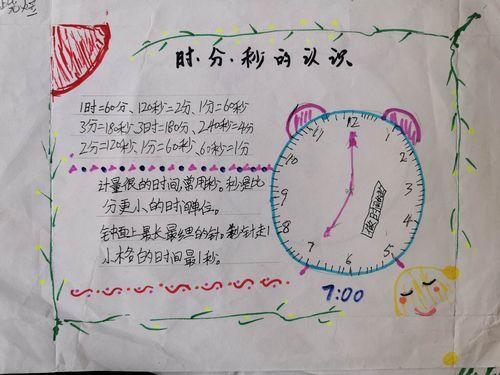 时.分.秒的认识
1时=60分、120秒=2分、1分=60秒
3分=180秒、3时=180分、240秒=4分
2分=120秒、1分=60秒、60秒=1分
计量很的时间,常用秒。秒是比
分更小的时间单位。
钟面上最长最细的针。秒针走1
小格的时间最1秒。
12
1
2
3
4
5
6
7
8
9
10
11
7:00